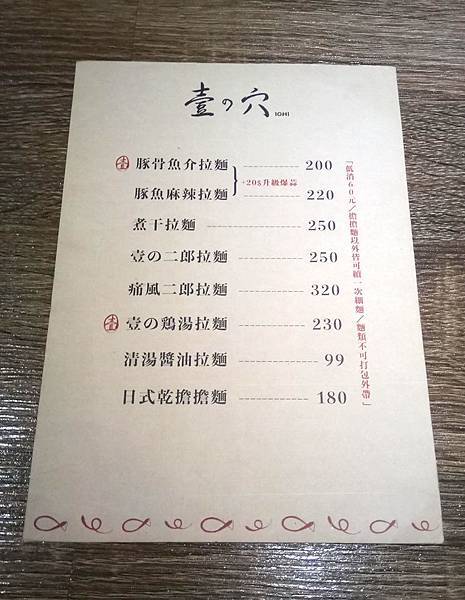 壹の穴 ICHI
壹 豚骨魚介拉麵 200
豚魚麻辣拉麵 220
+20$升級爆蒜
煮干拉麵 250
壹の二郎拉麵 250
痛風二郎拉麵 320
壹 壹の鶏湯拉麵 230
清湯醬油拉麵 99
日式乾擔擔麵 180
「低消60元／擔擔麵以外皆可續一次細麵／麵類不可打包外帶」